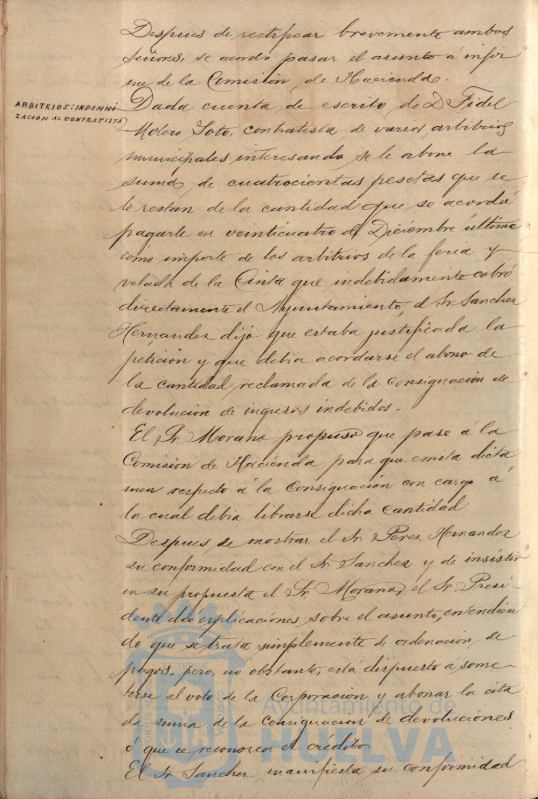 Despues de rectificar brevemente ambos
Señores, se acordó pasar el asunto á infor
me de la Comisión de Hacienda.
ARBITRIOS: INDEMNI
ZACION AL CONTRATISTA
Dada cuenta de escrito de D. Fidel
Molero Soto, contratista de varios arbitrios
municipales interesando se le abone la
suma de cuatrocientas pesetas que se
le restan de la cantidad que se acordó
pagarle en veinticuatro de Diciembre último
como importe de los arbitrios de la feria y
velada de la Cinta que indebidamente cobró
directamente el Ayuntamiento, el Sr. Sanchez
Hernandez dijo que estaba justificada la
petición y que debia acordarse el abono de
la cantidad reclamada de la consignación de
devolucion de ingresos indebidos.
El Sr. Morano propuso que pase a la
Comisión de Hacienda para que emita dicta
men respecto á la Consignación con cargo á
la cual debia librarse dicha cantidad
Despues de mostrar el Sr. Perez Hernandez
su conformidad con el Sr. Sanchez y de insistir
en su propuesta el Sr. Morano, el Sr. Presi
dente dió explicaciones sobre el asunto, entendien
do que se trata simplemente de ordenación de
pagos, pero, no obstante, está dispuesto a some
terse al voto de la Corporación y abonar la cita
da suma de la Consignacion de devoluciones
ó que se reconozca el crédito.
El Sr. Sanchez manifiesta su conformidad
Ayuntamiento de
HUELVA